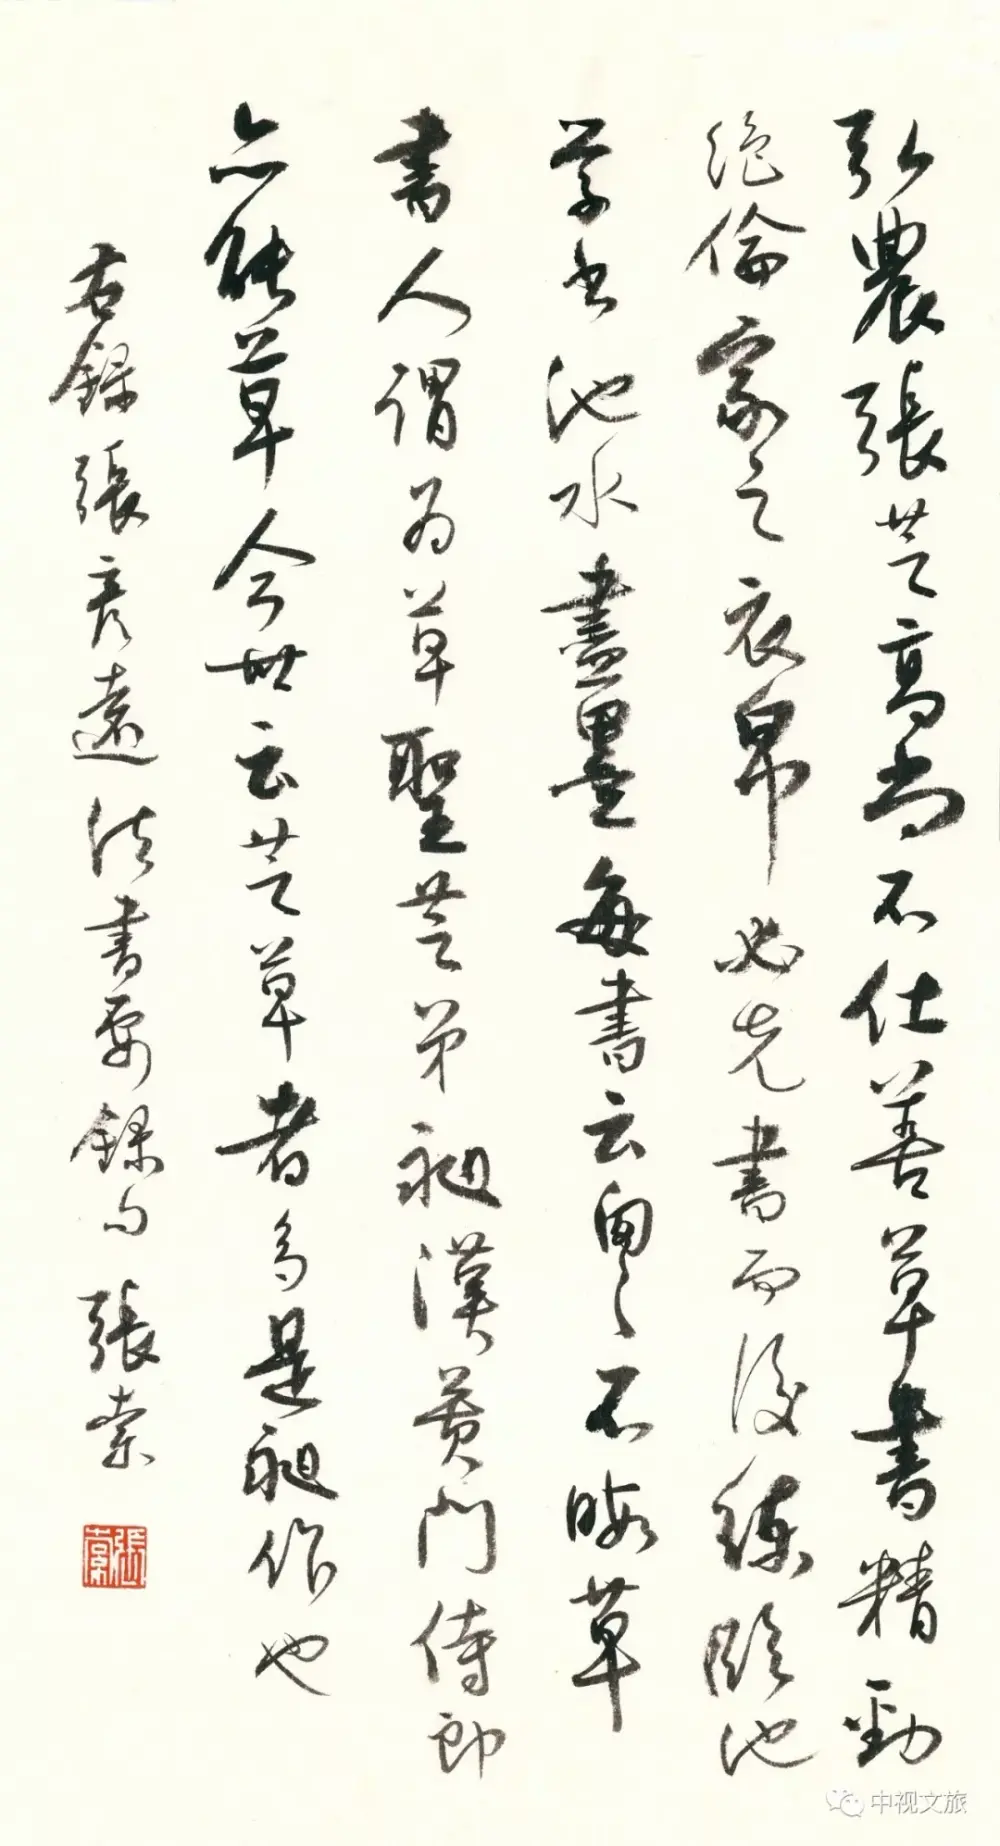 弘農張芝高尚不仕善草書精勁
絕倫家之衣帛必先書而後練臨池
學書池水盡墨每書云怱〻不暇草
書人謂為草聖芝弟昶漢黃門侍郎
亦能草今世云芝草者多是昶作也
右錄張彥遠法書要錄句 張索
張索
中视文旅